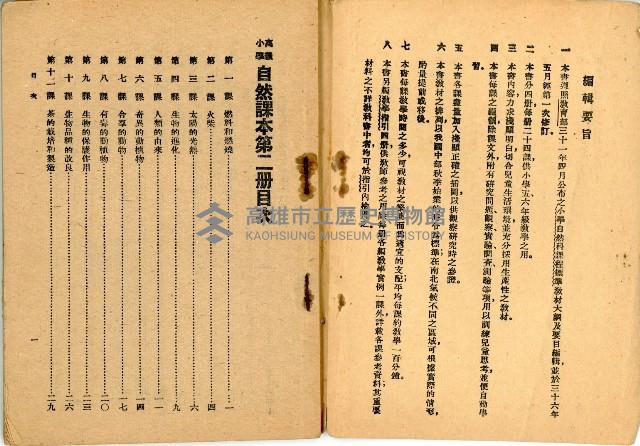 編輯要旨
一 本書遵照教育部三十一年四月公布之小學自然科課程標準教材大綱及要目編輯，並於三十六年
五月經第一次修訂。
二 本書分四册每册二十四課供小學五六年級教學之用。
三 本書內容力求淺顯明白切合兒童生活環境並充分採用生產性之教材。
四 本書每課之編制除課文外附有研究問題觀察實驗調查測驗等項用以訓練兒童思考並便自動學
習。
五 本書各課盡量加入淺顯正確之插圖以供觀察研究時之參證。
六 本書教材之排列以我國中部秋季始業的
標準在南北氣候不同之區域可根據實際的情形
酌量提前或移後。
七 本書每課教學時間之多少可視教材之繁簡而為適宜的支配平均每課約教學一百分鐘。
八 本書另編教學指引四册供教師參考之用
每册各編教學實例一課外詳載各課參考資料其重要
材料之不詳教科書中者均可於指引內檢得之。
高級
小學 自然課本第二册目次
第一課 燃料和燃燒 一
第二課 火柴 四
第三課 太陽的光熱 六
第四課 生物的進化 九
第五課 人類的由來 一二
第六課 奇異的動植物 一四
第七課 合享的動物 一七
第八課 有毒的動植物 二〇
第九課 生物的保護作用 二三
第十課 生物品種的改良 二六
第十一課 茶的栽培和製造 二九
目次
一
高雄市立歷史博物館
KAOHSIUNG MUSEUM OF HISTORY